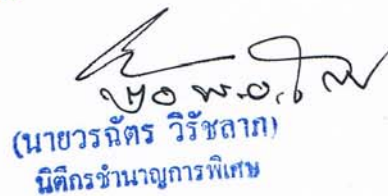 ๒๐ พ.ย.
(นายวรฉัตร วิรัชลาภ)
นิติกรชำนาญการพิเศษ